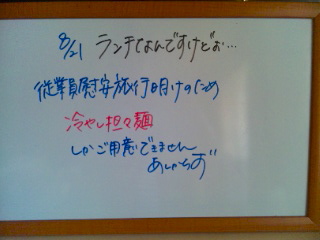 8/21 ランチなんですけどぉ…
従業員慰安旅行明けのため
冷やし担々麺
しかご用意できません
あしからず